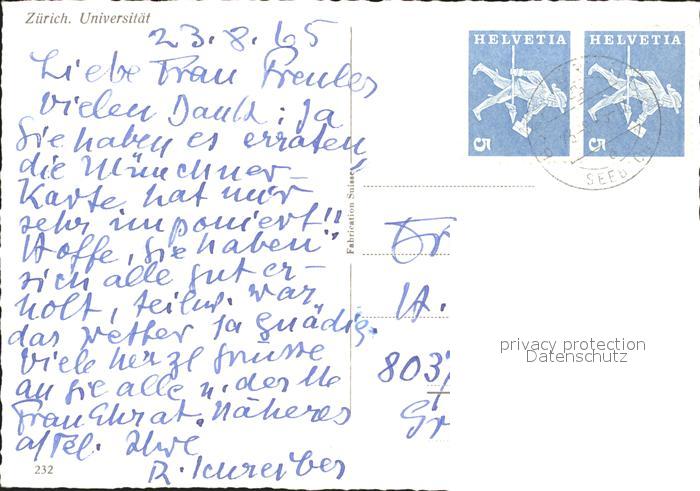 Zürich. Universität
23.8.65
Liebe Frau Frenler
vielen Dank! ja
Sie haben es erraten,
die Münchner-
Karte hat mir
sehr imponiert!!
Hoffe, Sie haben
sich alle gut er-
holt, teilw. war
das Wetter ja gnädig.
Viele herzl Grüsse
an Sie alle u. der lb
Frau Ehrat. Näheres
a/Tel. Ihre
R. Schreiber
232
Fabrication Suisse
HELVETIA
5
HELVETIA
5
SEEB
Fr
H.
803
Gr
privacy protection
Datenschutz